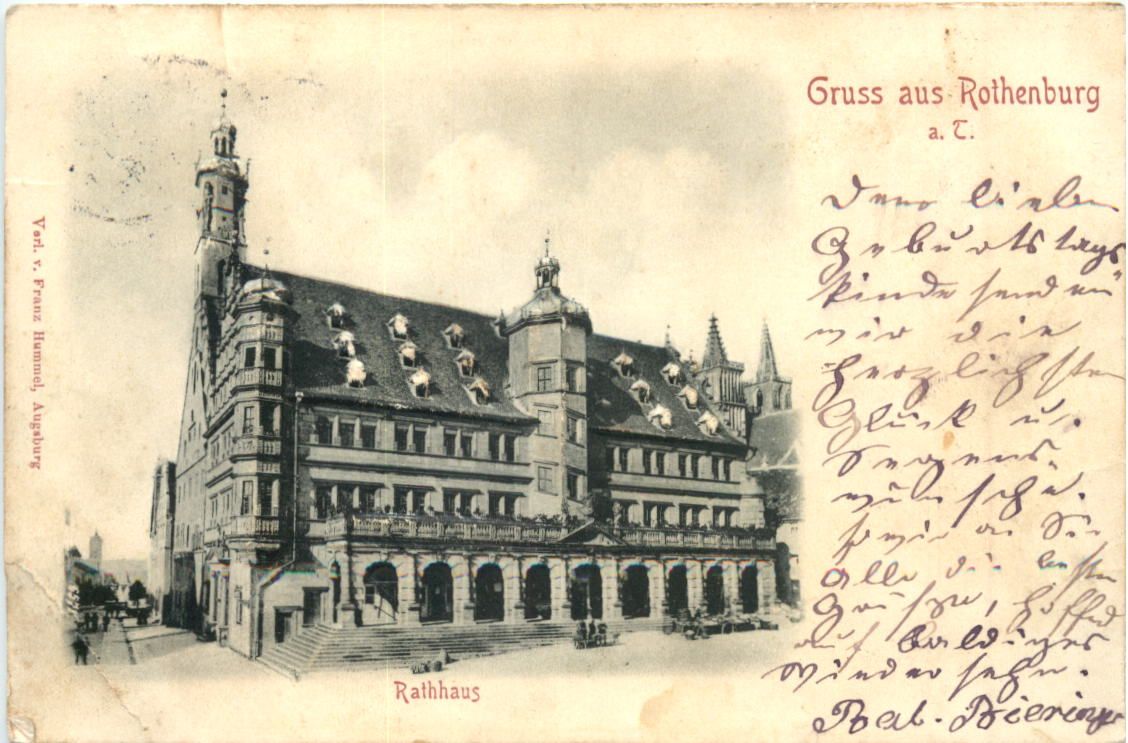 Gruss aus Rothenburg
a. T.
Verl. v. Franz Hummel, Augsburg
Dem lieben
Geburtstags
kinde senden
wir die
herzlichsten
Glück u.
Segens-
wünsche.
sowie an Sie
alle die besten
Grüße, hoffend
auf baldiges
Wiedersehn.
Rathhaus